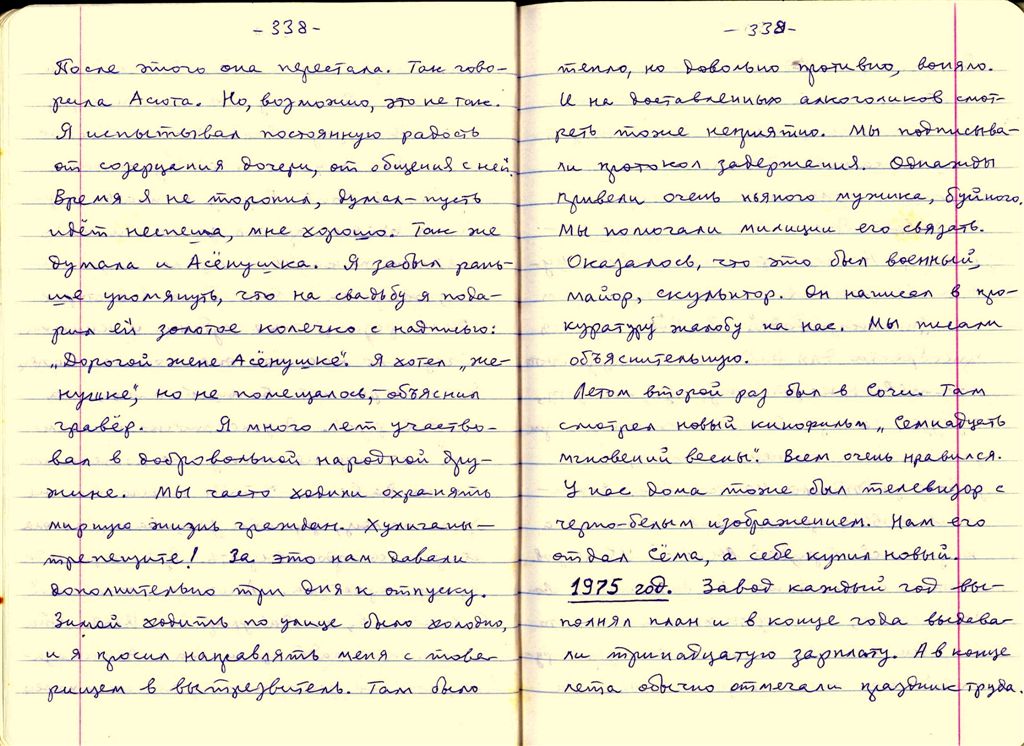 -338-
После этого она перестала. Так гово-
рила Асюта. Но, возможно, это не так.
Я испытывал постоянную радость
от созерцания дочери, от общения с ней.
Время я не торопил, думал - пусть
идёт неспеша, мне хорошо. Так же
думала и Асёнушка. Я забыл рань-
ше упомянуть, что на свадьбу я пода-
рил ей золотое колечко с надписью:
„Дорогой жене Асёнушке". Я хотел „же-
нушке", но не помещалось, - объяснил
гравёр. Я много лет участво-
вал в добровольной народной дру-
жине. Мы часто ходили охранять
мирную жизнь граждан. Хулиганы —
трепещите! За это нам давали
дополнительно три дня к отпуску.
Зимой ходить по улице было холодно,
и я просил направлять меня с това-
рищем в вытрезвитель. Там было
-339-
тепло, но довольно противно, воняло.
И на доставленных алкоголиков смот-
реть тоже неприятно. Мы подписыва-
ли протокол задержания. Однажды
привели очень пьяного мужика, буйного.
Мы помогали милиции его связать.
Оказалось, что это был военный,
майор, скульптор. Он написал в про-
куратуру жалобу на нас. Мы писали
объяснительную.
Летом второй раз был в Сочи. Там
смотрел новый кинофильм „Семнадцать
мгновений весны". Всем очень нравился.
У нас дома тоже был телевизор с
черно-белым изображением. Нам его
отдал Сёма, а себе купил новый.
1975 год. Завод каждый год вы-
полнял план и в конце года выдава-
ли тринадцатую зарплату. А в конце
лета обычно отмечали праздник труда.